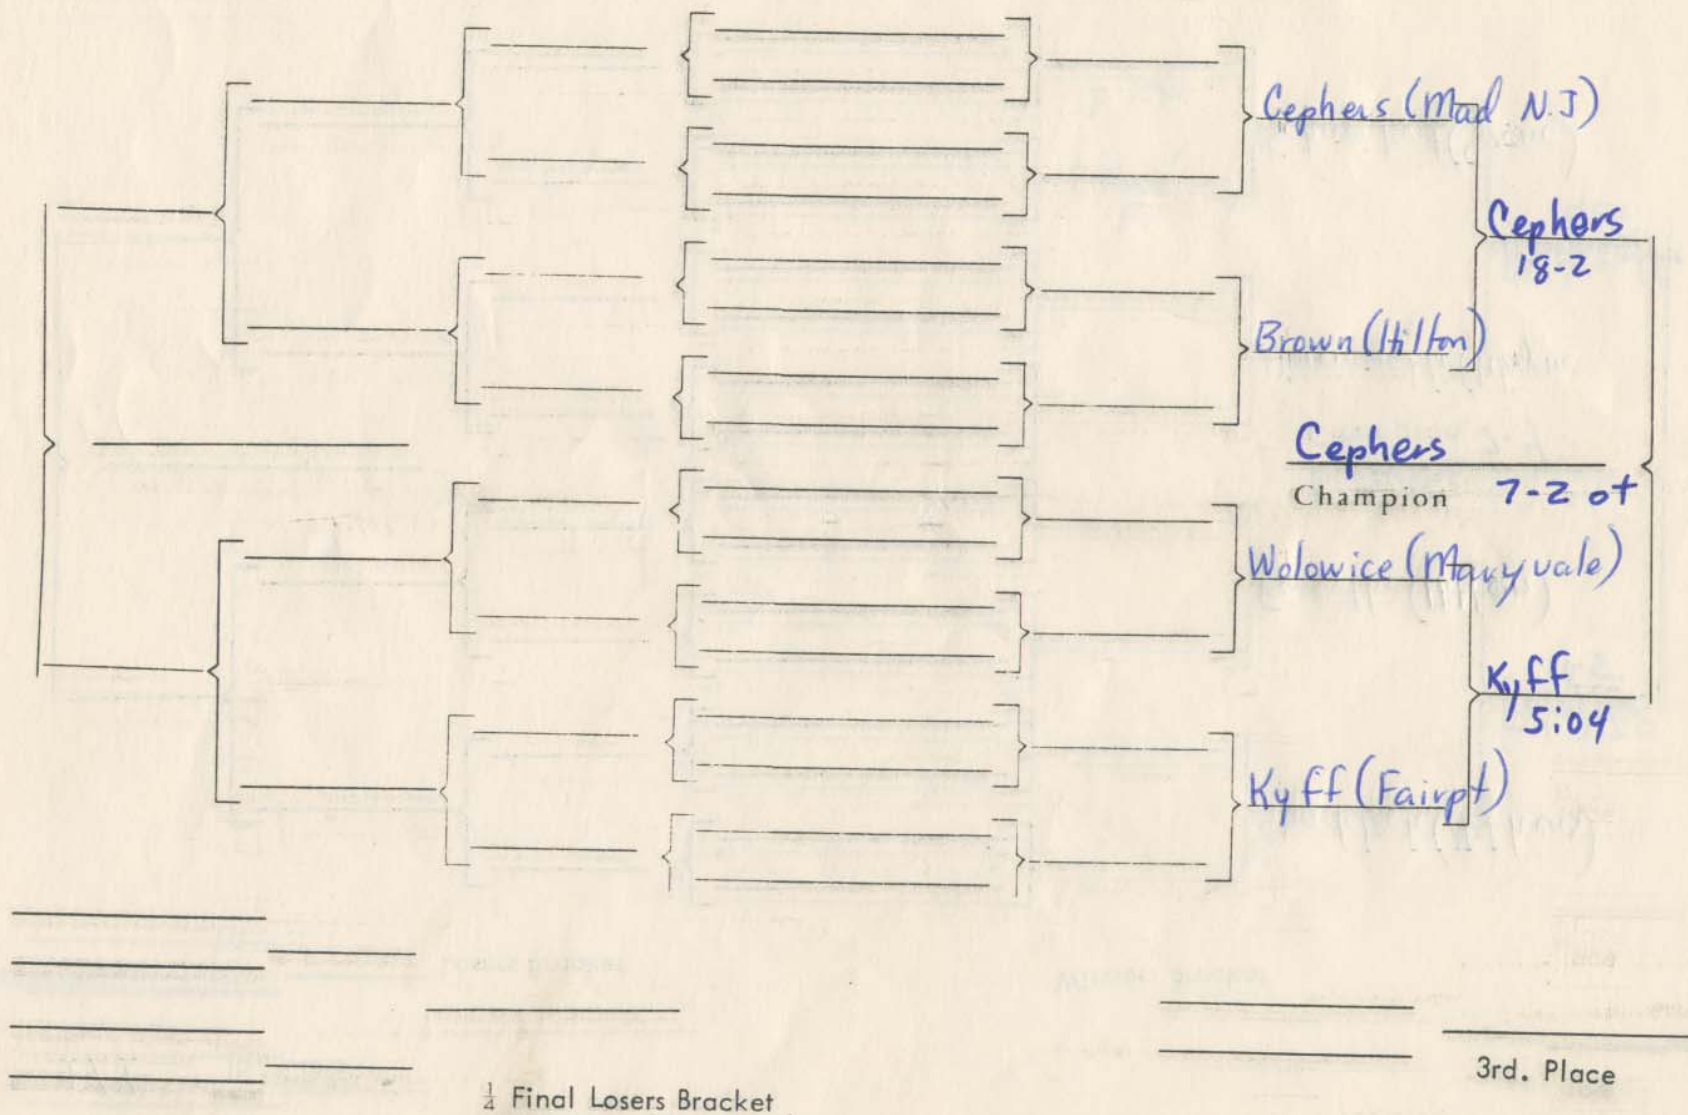 Cephers (Mad N.J)
Cephers
18-2
Brown (Hilton)
Cephers
Champion 7-2 ot
Wolowice (Maryvale)
Kyff
5:04
Kyff (Fairpt)
3rd. Place
¼ Final Losers Bracket